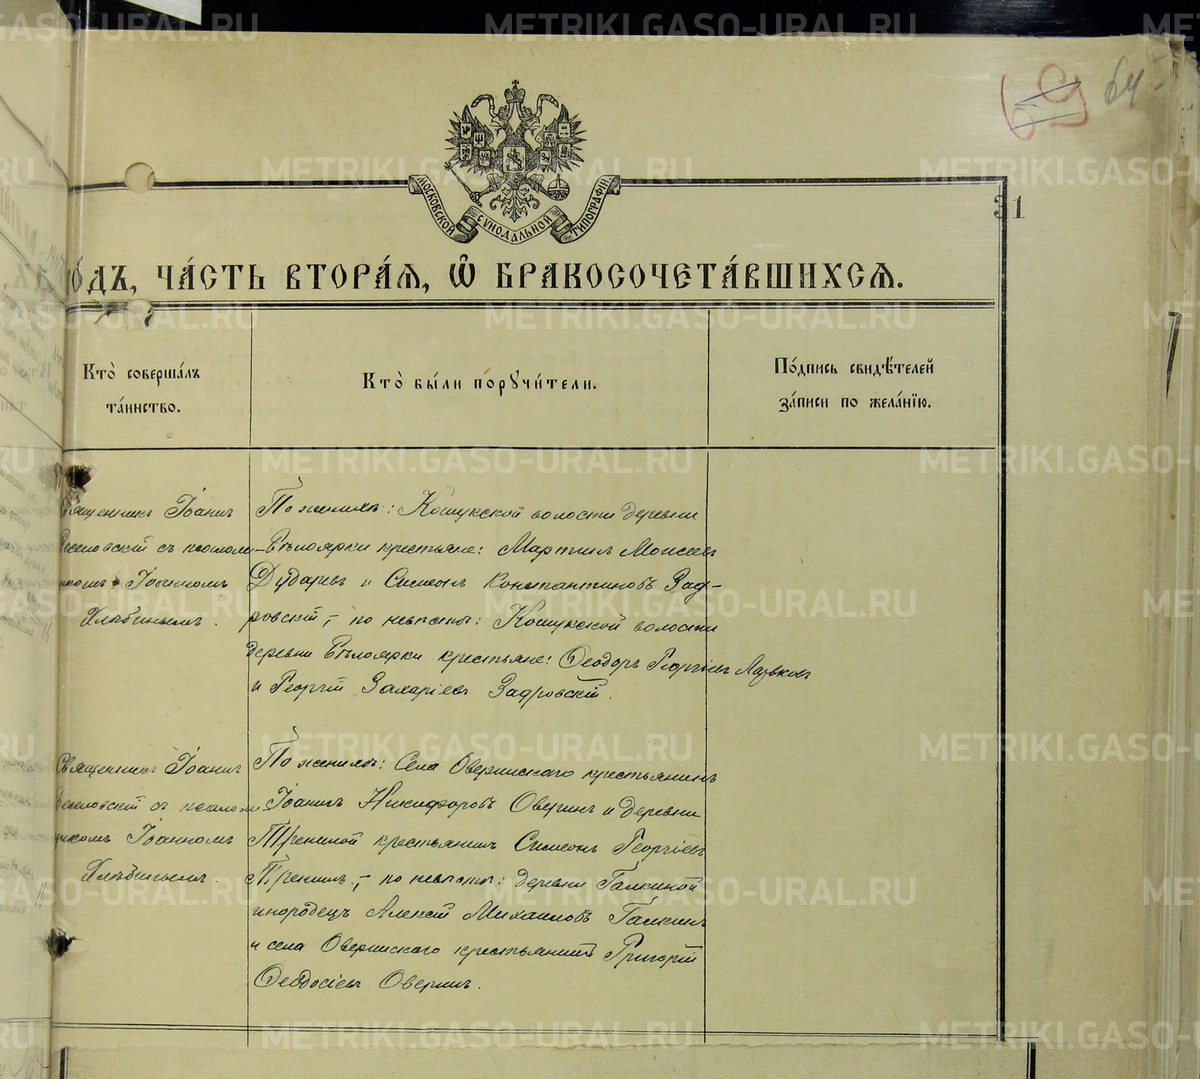 64
31
МОСКОВСКОЙ СУНОДАЛЬНОЙ ТИПОГРАФІИ.
О́ДЪ, ЧА́СТЬ ВТОРА́Я, Ѽ БРАКОСОЧЕТА́ВШИХСЯ.
Кто̀ соверша́лъ
та́инство.
Кто̀ бы́ли порꙋчи́тели.
По́дпись свидѣ́телей
за́писи по жела́нїю.
Священникъ Іоаннъ
Веселовскій съ псалом-
щикомъ Іоанномъ
Хлѣбинымъ.
По женихѣ: Кошукской волости деревни
Бѣлоярки крестьяне: Мартинъ Моисеевъ
Дударевъ и Симеонъ Константиновъ Зад-
ровскій, – по невѣстѣ: Кошукской волости
деревни Бѣлоярки крестьяне: Ѳеодоръ Георгіевъ Лазьковъ
и Георгій Захаріевъ Задровскій.
Священникъ Іоаннъ
Веселовскій съ псалом-
щикомъ Іоанномъ
Хлѣбинымъ.
По женихѣ: Села Оверинскаго крестьянинъ
Іоаннъ Никифоровъ Оверинъ и деревни
Трениной крестьянинъ Симеонъ Георгіевъ
Тренинъ, – по невѣстѣ: деревни Галкиной
инородецъ Алексій Михаиловъ Галкинъ
и села Оверинскаго крестьянинъ Григорій
Ѳеодосіевъ Оверинъ.
METRIKI.GASO-URAL.RU